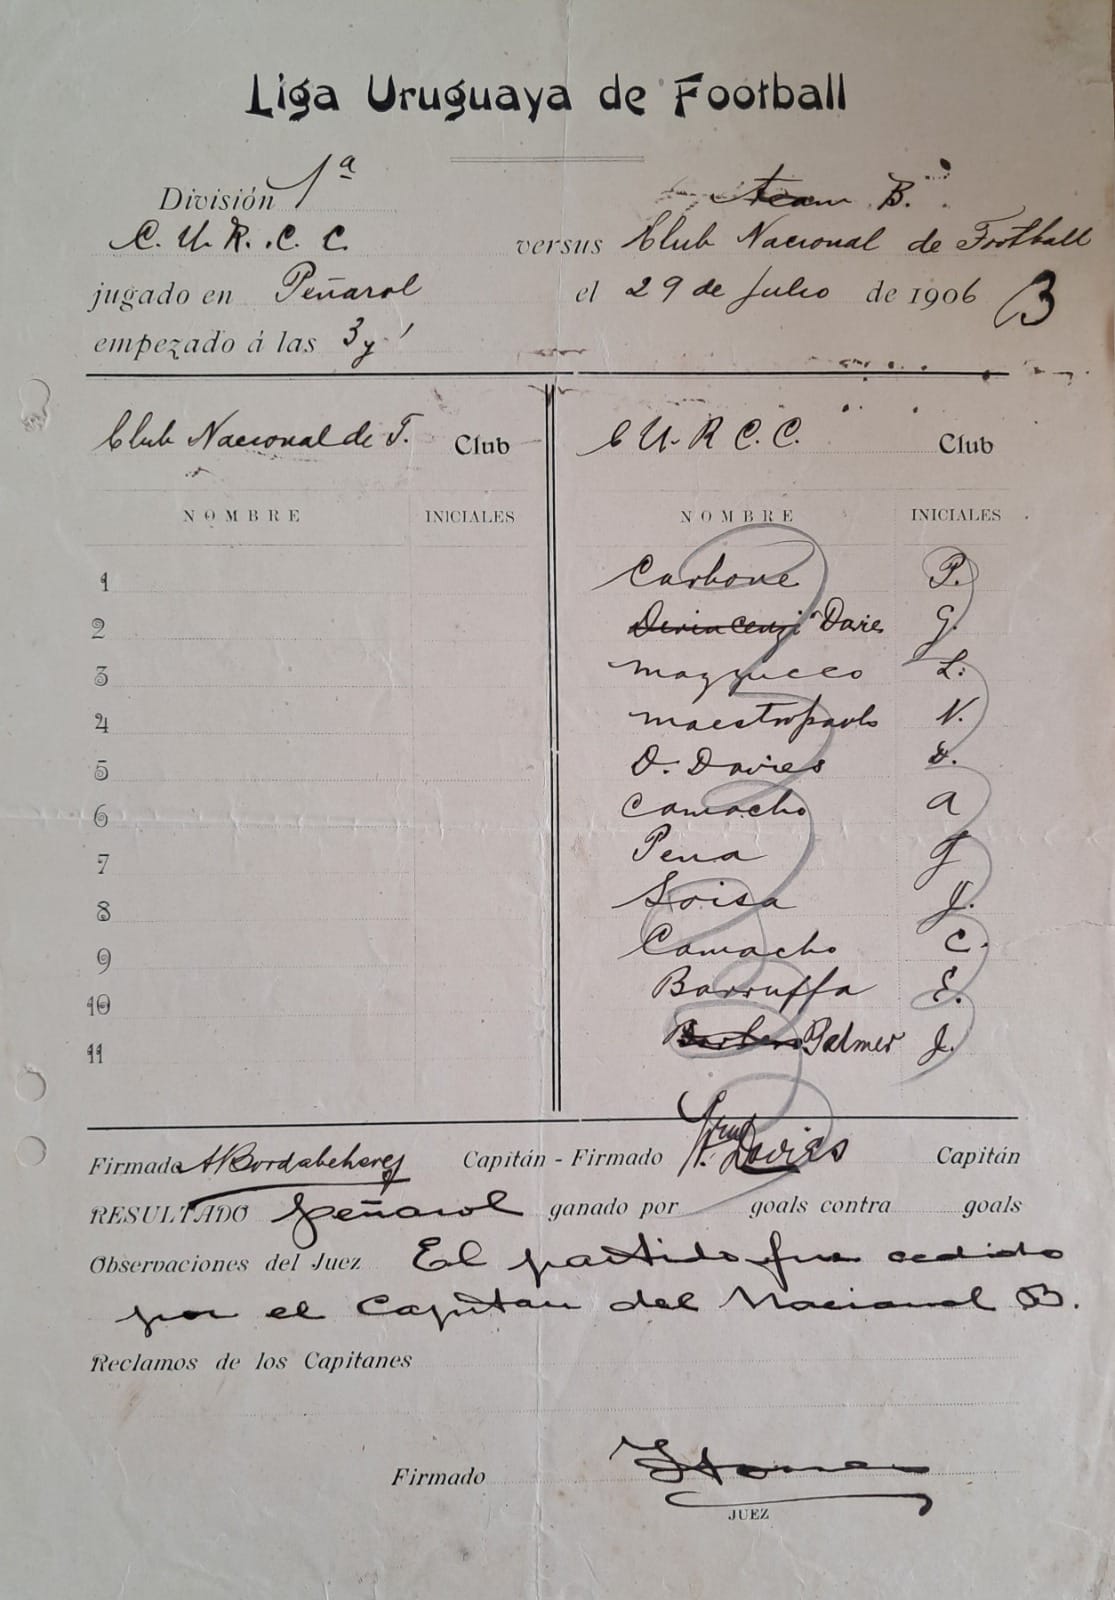 Liga Uruguaya de Football
División 1ª
team B.
C. U. R. C. C. versus Club Nacional de Football
jugado en Peñarol el 29 de Julio de 1906 B
empezado á las 3 y
Club Nacional de F. Club C U R C C. Club
NOMBRE INICIALES NOMBRE INICIALES
1 Carbone P.
2 Devincenzi Davies G.
3 Mazzucco L.
4 Maestropaolo N.
5 O. Davies
6 Camacho A
7 Pena
8 Soisa J.
9 Camacho C.
10 Barruffa E.
11 Palmer J.
Firmado A Bordabehere Capitán - Firmado Davies Capitán
RESULTADO Peñarol ganado por goals contra goals
Observaciones del Juez El partido fue cedido
por el Capitan del Nacional B.
Reclamos de los Capitanes
Firmado
JUEZ